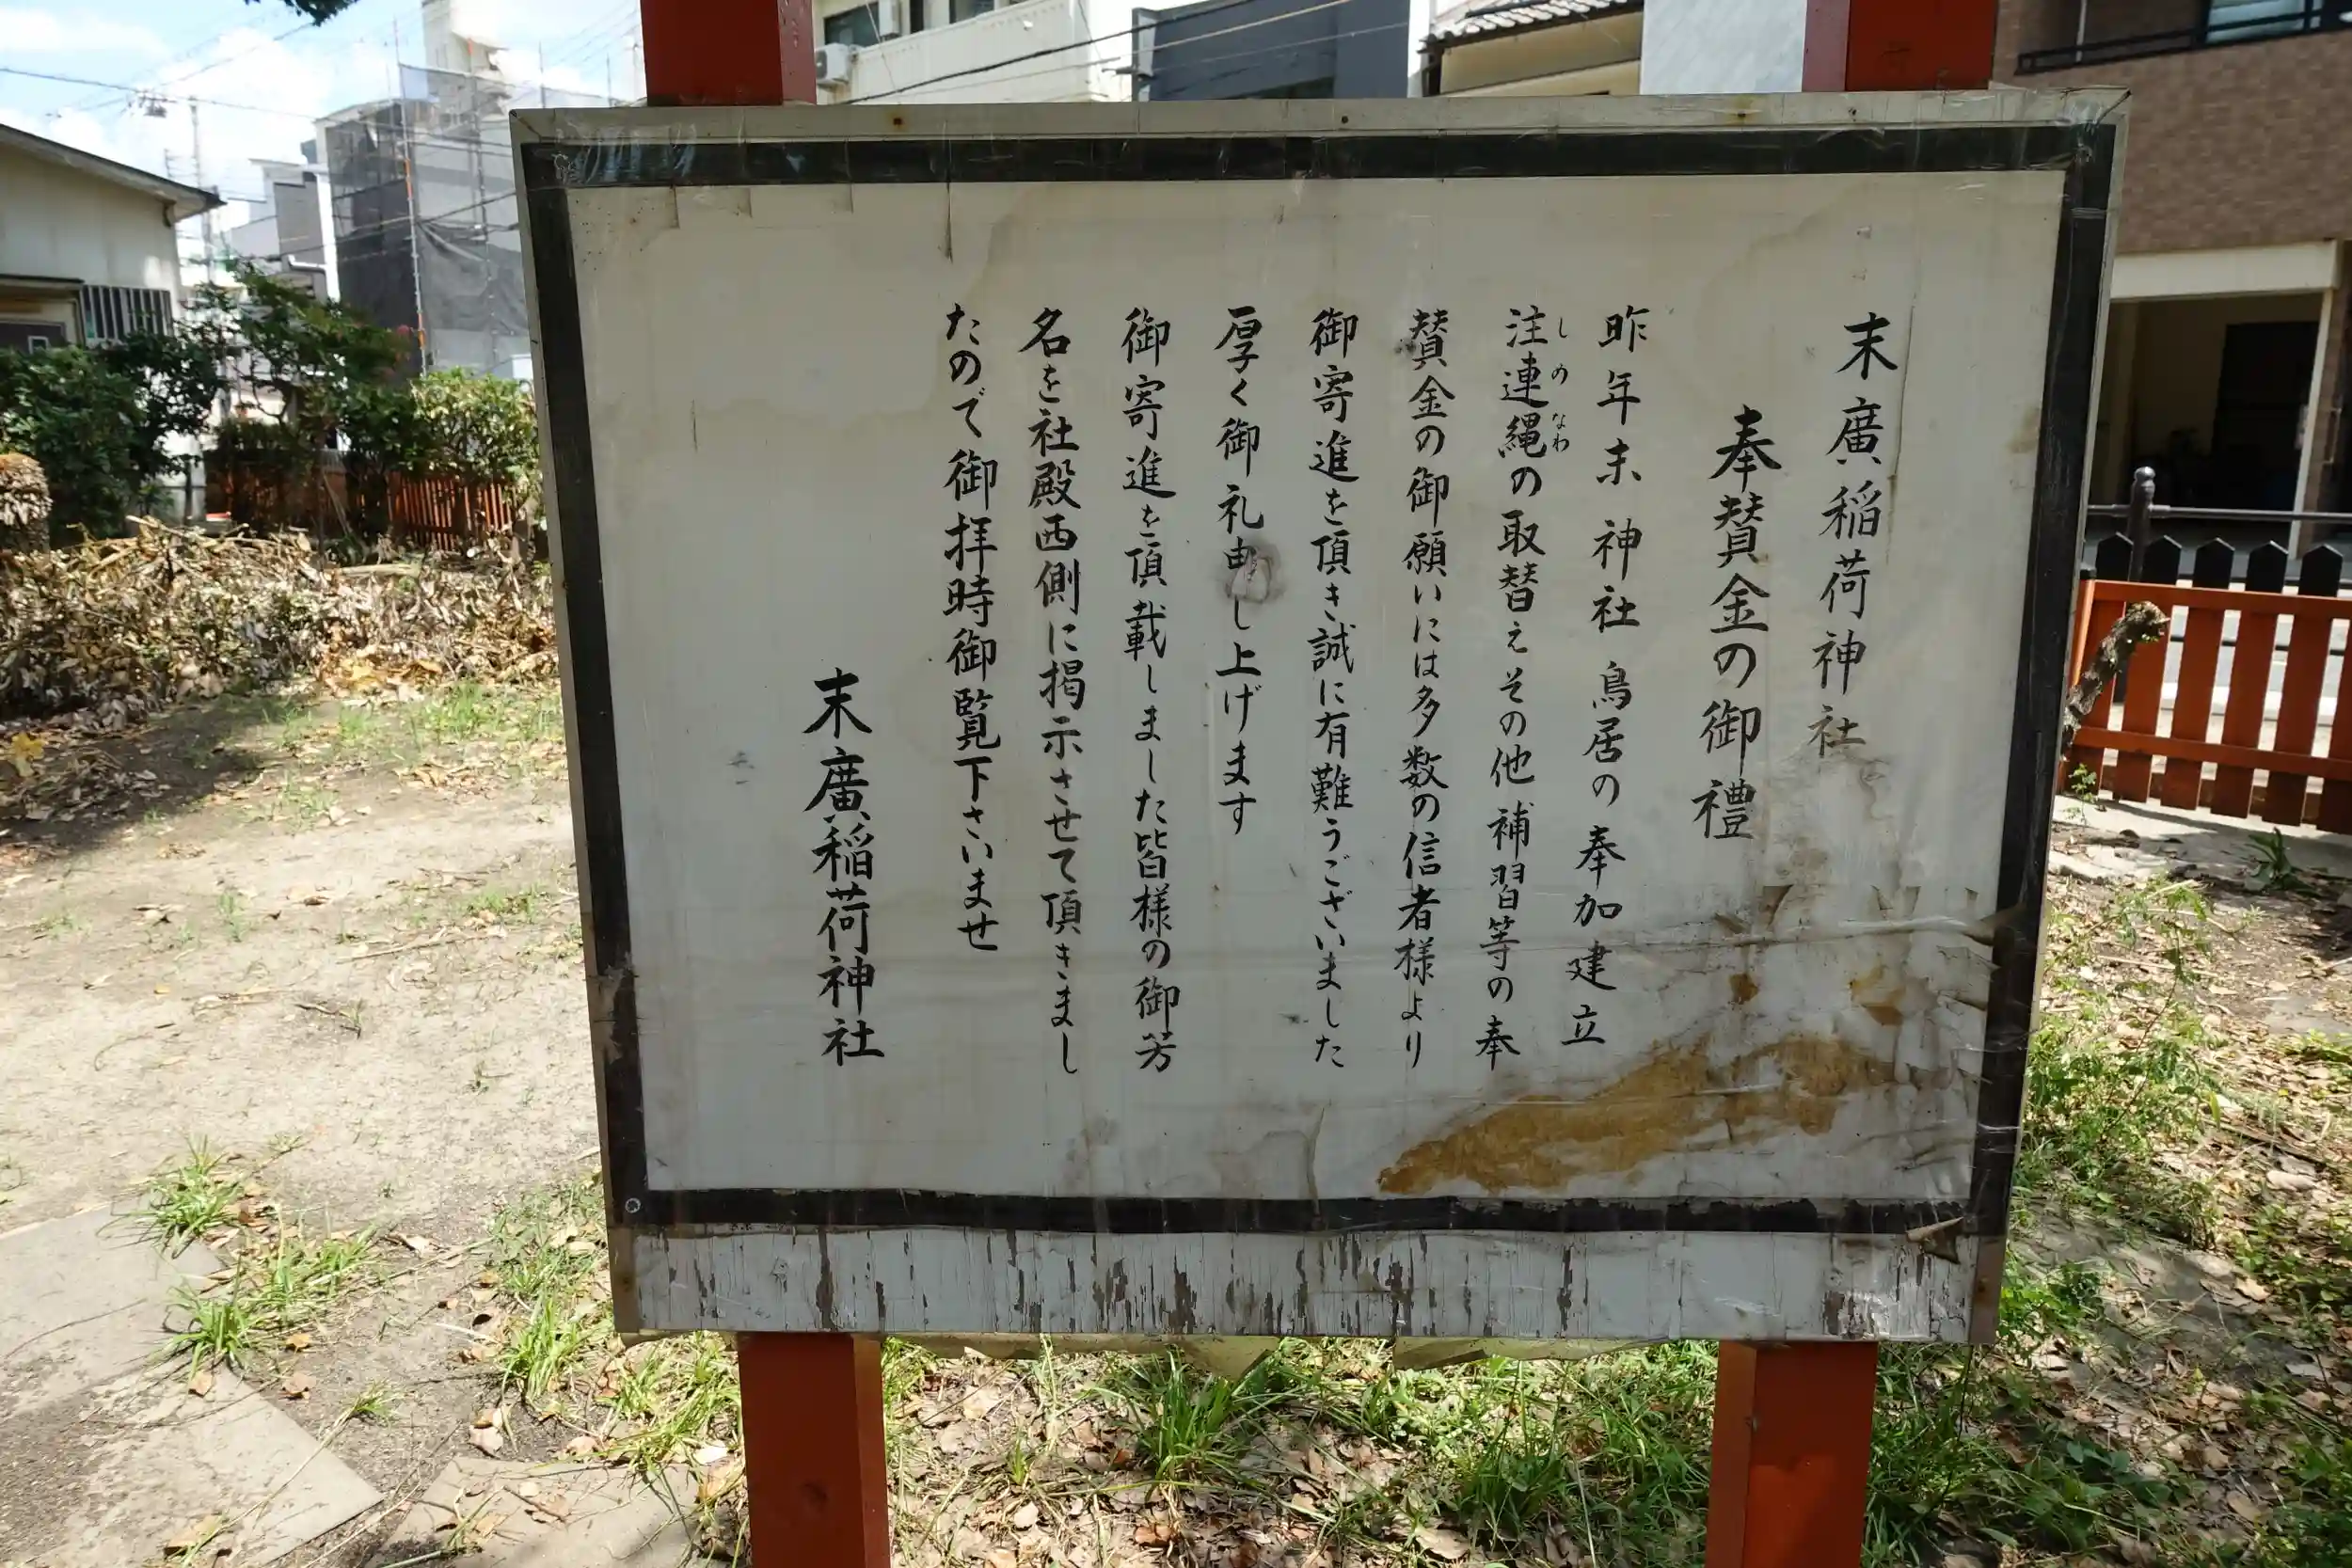 末廣稲荷神社
奉賛金の御禮
昨年末 神社 鳥居の奉加建立
注連縄の取替えその他補習等の奉
しのなわ
賛金の御願いには多数の信者様より
御寄進を頂き誠に有難うございました
厚く御礼申し上げます
御寄進を頂載しました皆様の御芳
名を社殿西側に掲示させて頂きまし
たので御拝時御覧下さいませ
末廣稲荷神社